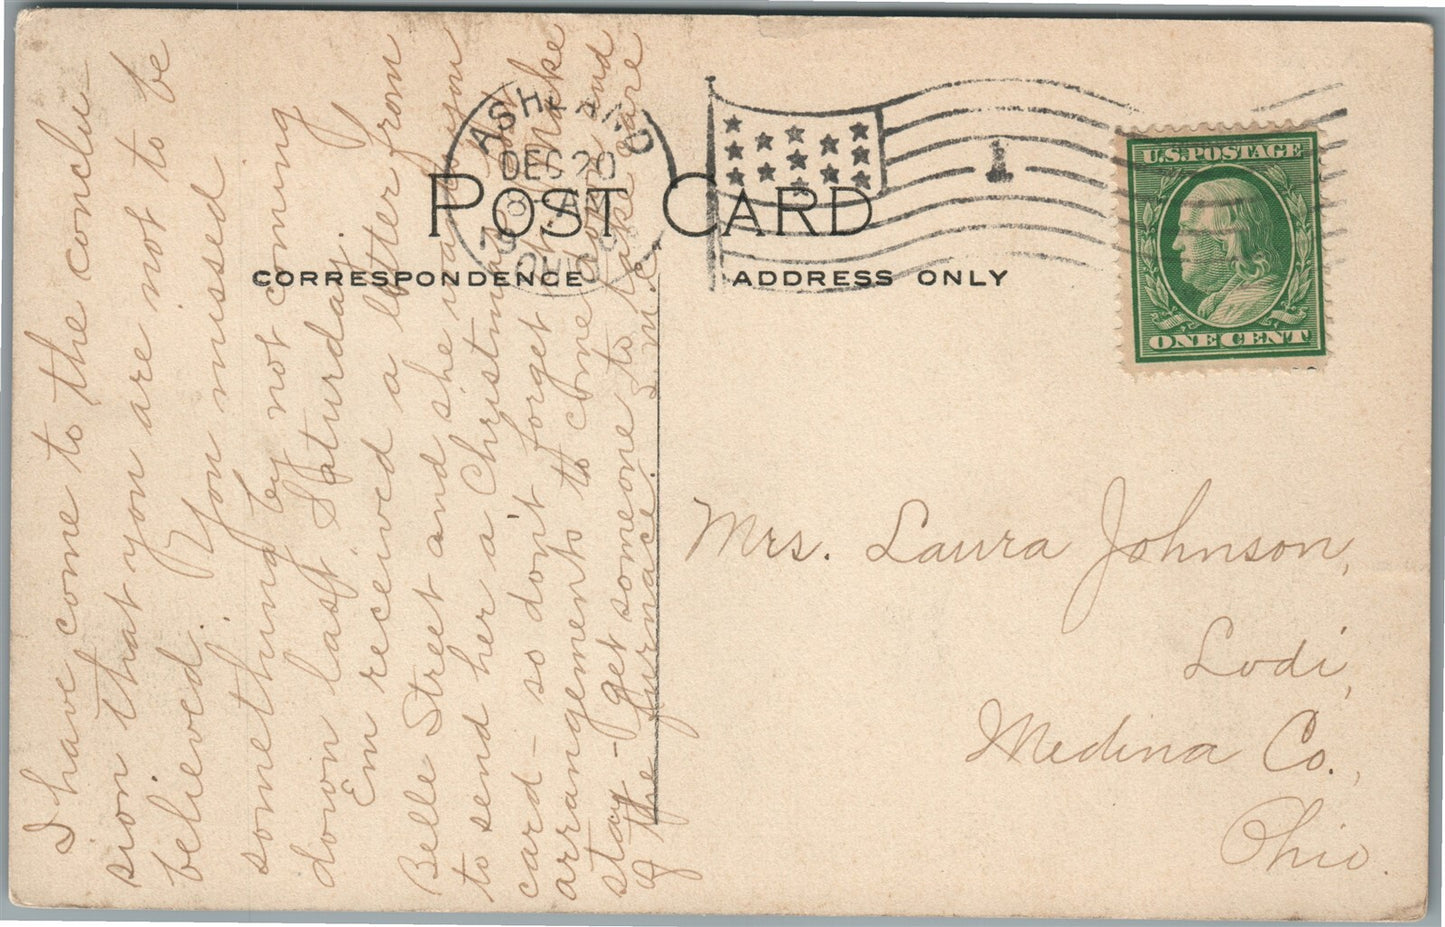 POST CARD
CORRESPONDENCE
ADDRESS ONLY
ASHLAND
DEC 20
8 - AM
OHIO
1
U.S. POSTAGE
ONE CENT
Mrs. Laura Johnson,
Lodi,
Medina Co.,
Ohio.
I have come to the conclu-
sion that you are not to be
believed. You missed
something by not coming
down last Saturday.
Em received a letter from
Belle Street and she wants you
to send her a Christmas
card - so don't forget it. Make
arrangements to come and
stay - get someone to take care
of the furnace.